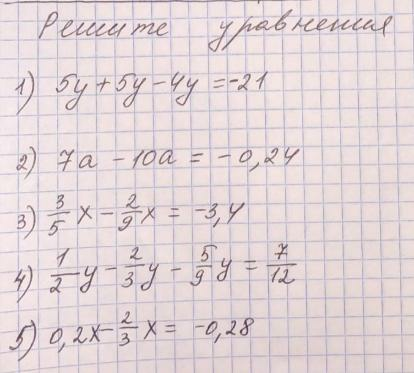 Решите уравнения
1) 5y + 5y - 4y = -21
2) 7a - 10a = - 0,24
3) 3/5 x - 2/9 x = -3,4
4) 1/2 y - 2/3 y - 5/9 y = 7/12
5) 0,2x - 2/3 x = -0,28